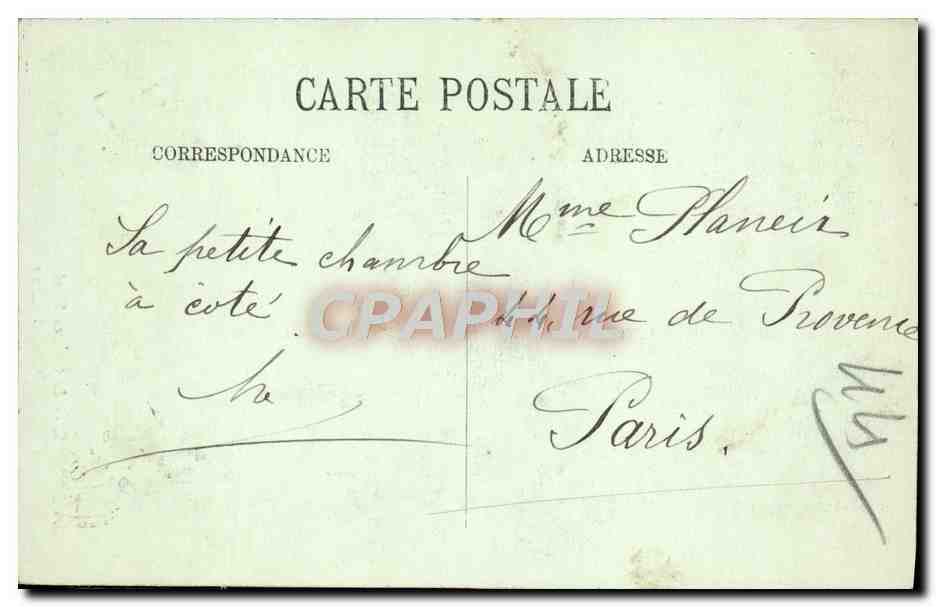 CARTE POSTALE
CORRESPONDANCE
ADRESSE
La petite chambre
à coté.
Mme Planeix
44, rue de Provence
Paris.
CPAPHIL